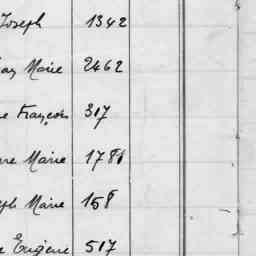 Joseph 1342
Marie 2462
François 317
Marie 1781
Marie 158
Eugène 507